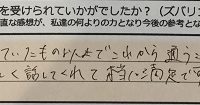 を受けられていかがでしたか？（ズバリ
直な感想が、私達の何よりの力となり今後の参考とな
ていたもの以上でこれから通うこ
く話してくれて本当に満足で